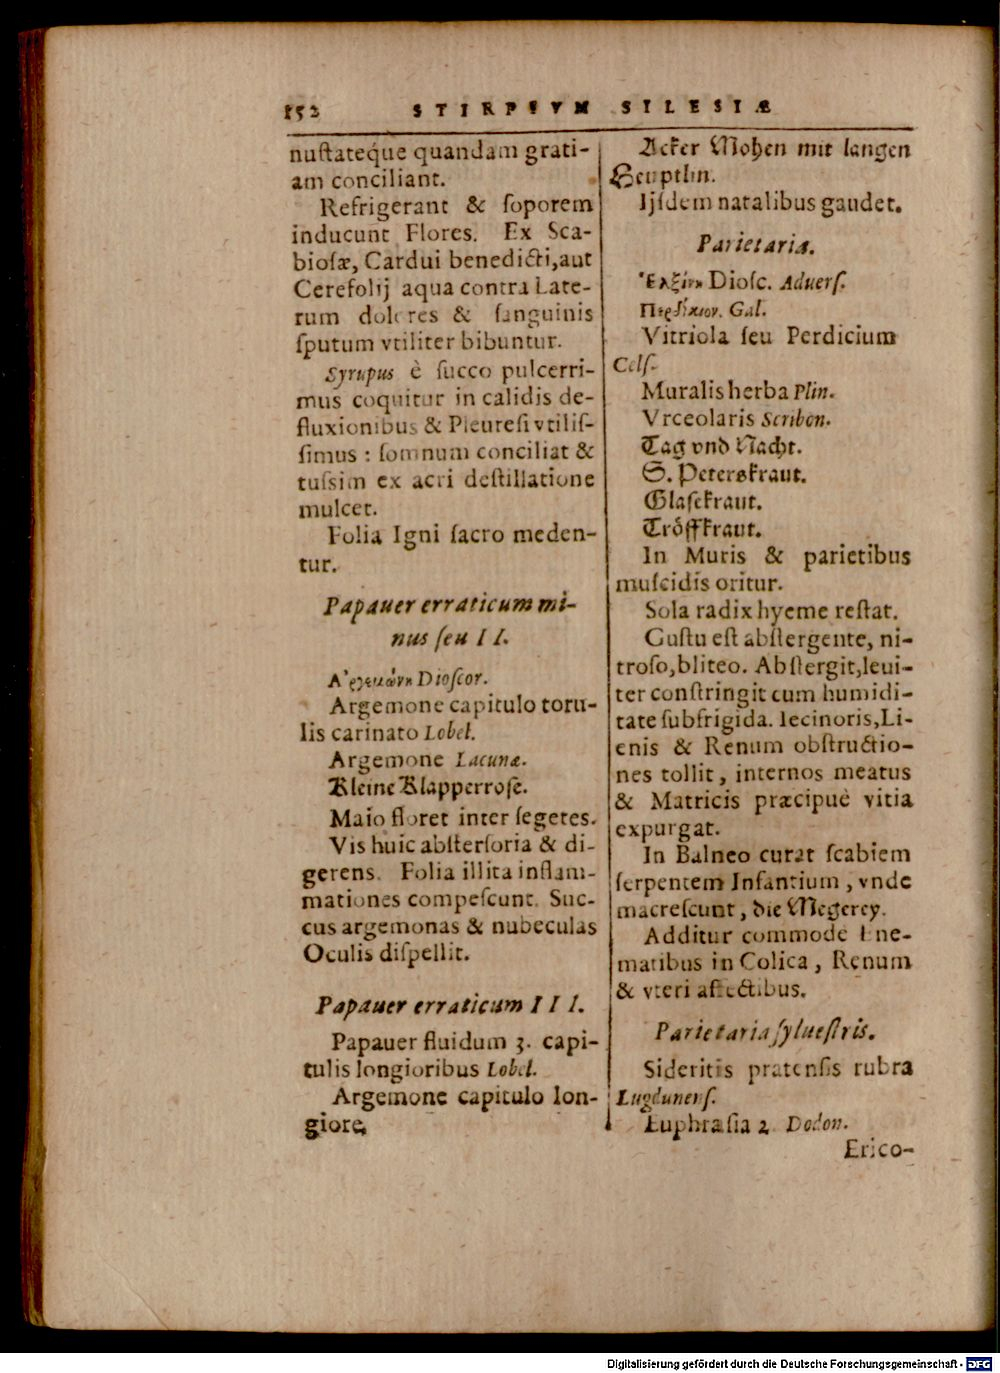 152 STIRPIVM SILESIÆ
nuſtateque quandam grati-
am conciliant.
Refrigerant & ſoporem
inducunt Flores. Ex Sca-
bioſæ, Cardui benedicti, aut
Cerefolij aqua contra Late-
rum dolores & ſanguinis
ſputum vtiliter bibuntur.
Syrupus è ſucco pulcerri-
mus coquitur in calidis de-
fluxionibus & Pleureſi vtiliſ-
ſimus : ſomnum conciliat &
tuſsim ex acri deſtillatione
mulcet.
Folia Igni ſacro meden-
tur.
Papauer erraticum mi-
nus ſeu II.
Ἀργεμώνη Dioſcor.
Argemone capitulo toru-
lis carinato Lobel.
Argemone Lacunæ.
Kleine Klapperroſe.
Maio floret inter ſegetes.
Vis huic abſterſoria & di-
gerens. Folia illita inflam-
mationes compeſcunt. Suc-
cus argemonas & nubeculas
Oculis diſpellit.
Papauer erraticum III.
Papauer fluidum 3. capi-
tulis longioribus Lobel.
Argemone capitulo lon-
giore,
Acker Mohen mit langen
Heuptlin.
Ijſdem natalibus gaudet.
Parietaria.
Ἑλξίνη Dioſc. Aduerſ.
Περδίκιον. Gal.
Vitriola ſeu Perdicium
Celſ.
Muralis herba Plin.
Vrceolaris Scribon.
Tag vnd Nacht.
S. Peterskraut.
Glaſekraut.
Tröffkraut.
In Muris & parietibus
muſcidis oritur.
Sola radix hyeme reſtat.
Guſtu eſt abſtergente, ni-
troſo, bliteo. Abſtergit, leui-
ter conſtringit cum humidi-
tate ſubfrigida. Iecinoris, Li-
enis & Renum obſtructio-
nes tollit, internos meatus
& Matricis præcipuè vitia
expurgat.
In Balneo curat ſcabiem
ſerpentem Infantium, vnde
macreſcunt, die Megerey.
Additur commodè Ene-
matibus in Colica, Renum
& vteri affectibus.
Parietaria ſylueſtris.
Sideritis pratenſis rubra
Lugdunenſ.
Euphraſia 2 Dodon.
Erico-
Digitalisierung gefördert durch die Deutsche Forschungsgemeinschaft - DFG